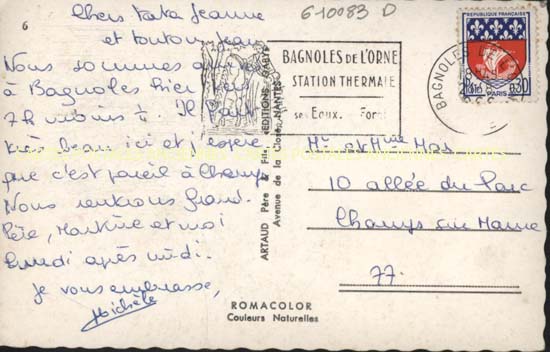 6
610083 D
Chers tata Jeanne
et tonton Jean
Nous sommes
à Bagnoles hier
7h moins ¼. Il fait
très beau ici et j'espère
que c'est pareil à Champs
Nous rentrons Grand-
Père, Martine et moi
Lundi après midi.
Je vous embrasse,
Michèle
ARTAUD Père & Fils, EDITIONS GABY
Avenue de la Close, NANTES
BAGNOLES DE L'ORNE
STATION THERMALE
ses Eaux. Forêt
BAGNOLES DE L'
REPUBLIQUE FRANÇAISE
POSTES 0,30
PARIS
Mr et Mme Mas
10 allée du Parc
Champs sur Marne
77.
ROMACOLOR
Couleurs Naturelles